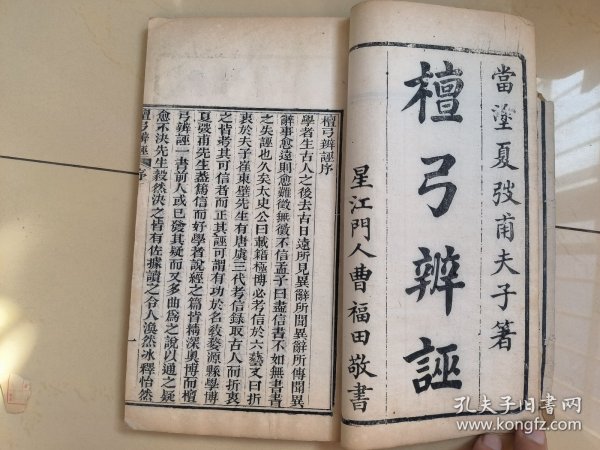 當塗夏弢甫夫子著
檀弓辨誣
星江門人曹福田敬書
檀弓辨誣序
學者生古人之後去古日遠所見異辭所聞異辭所傳聞異
辭事愈遠則愈難徵無徵不信孟子曰盡信書不如無書書
之失誣也久矣太史公曰載籍極博必考信於六藝又曰折
衷於夫子崔東壁先生有唐虞三代考信錄取古人而折衷
之皆考其可信者而正其誣可謂有功於名教婺源縣學博
夏弢甫先生蓋篤信而好學者說經之篇皆精深奥博而檀
弓辨誣一書前人或已發其疑而又多曲爲之說以通之疑
愈不決先生毅然決之皆有佐據讀之令人渙然冰釋怡然
檀弓辨誣 序
孔夫子旧书网
www.kongfz.com